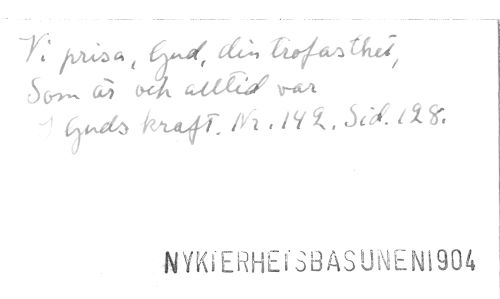 Vi prisa, Gud, din trofasthet,
Som är och alltid var
I Guds kraft. Nr. 142. Sid. 128.
NYKTERHETSBASUNEN1904